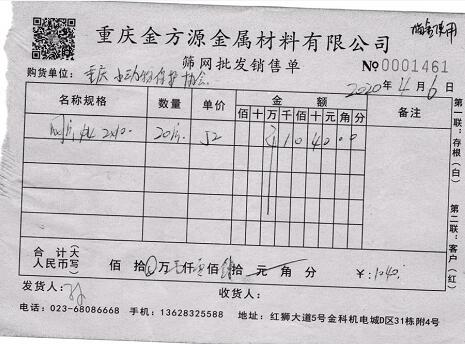 重庆金方源金属材料有限公司
筛网批发销售单 № 0001461
购货单位：重庆小动物保护协会 2020年4月6日
名称规格 数量 单价 金额 备注
佰 十 万 千 佰 十 元 角 分
52 ¥ 1 0 4 0 0 0
合计大
人民币写 佰 拾 万 仟 佰 拾 元 角 分 ¥：1040
发货人： 收货人：
电话：023-68086668 手机：13628325588 地址：红狮大道5号金科机电城D区31栋附4号
第一联：存根（白） 第二联：客户（红）